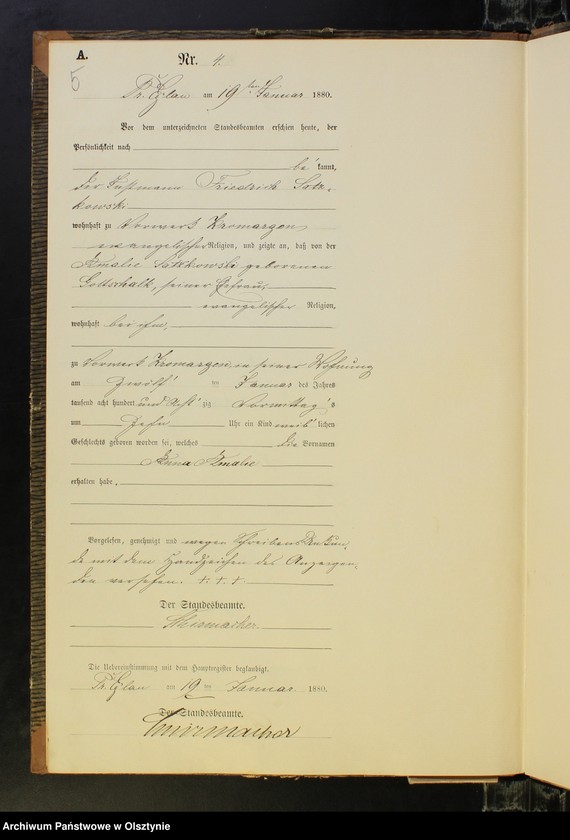 A.
Nr. 4.
5
Pr. Eylau am 19ten Januar 1880.
Vor dem unterzeichneten Standesbeamten erschien heute, der
Persönlichkeit nach
be kannt,
der Instmann Friedrich Satz-
kowski
wohnhaft zu Vorwerk
evangelischer Religion, und zeigte an, daß von der
Amalie Satzkowski geborenen
Gottschalk, seiner Ehefrau,
evangelischer Religion,
wohnhaft bei ihm,
zu Vorwerk in seiner Wohnung
am zwölften Januar des Jahres
tausend acht hundert und acht zig Vormittag s
um Zehn Uhr ein Kind weib lichen
Geschlechts geboren worden sei, welches die Vornamen
Anna Amalie
erhalten habe.
Vorgelesen, genehmigt und wegen Schreibens Unkun-
de mit dem Handzeichen des Anzeigen-
den versehen. + + +
Der Standesbeamte.
Die Uebereinstimmung mit dem Hauptregister beglaubigt.
Pr. Eylau am 19 ten Januar 1880.
Der Standesbeamte.
Archiwum Państwowe w Olsztynie